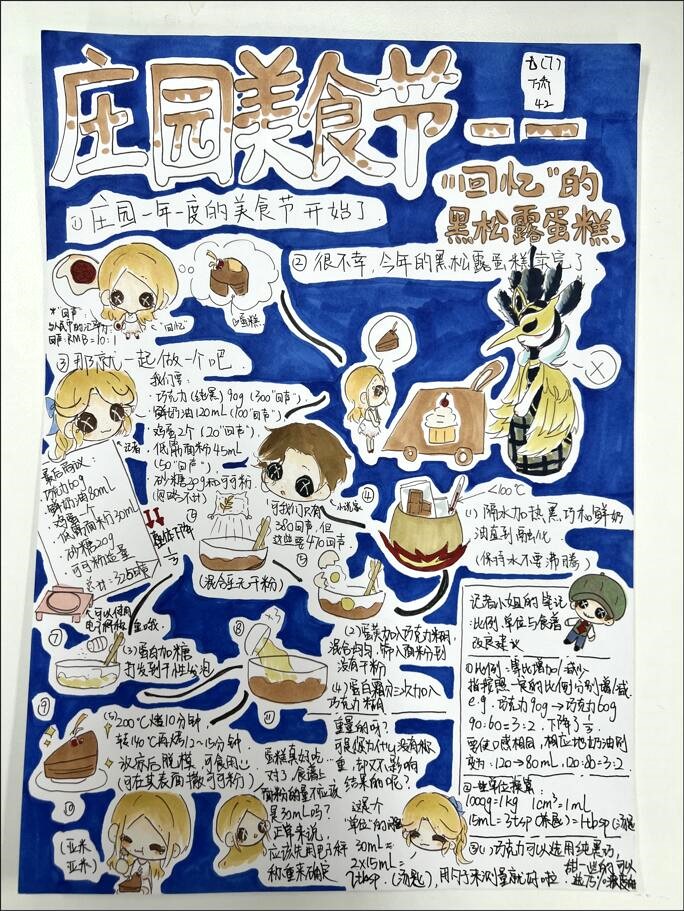 庄园美食节——
"回忆"的
黑松露蛋糕
七(7)
42
①庄园一年一度的美食节开始了.
②很不幸,今年的黑松露蛋糕卖完了
*"回声":
"回忆"
回声:RMB=10:1
蛋糕
③那就一起做一个吧.
我们要:
巧克力(纯黑)90g(300"回声")
鲜奶油120mL(100"回声")
鸡蛋2个(20"回声")
低筋面粉45mL
(50"回声")
砂糖30g和可可粉
(忽略不计)
记者
最后商议:
巧克力60g
鲜奶油80mL
鸡蛋
低筋面粉30mL
砂糖20g
可可粉适量
整体下降
1/3
小说家
可我们只有
380回声,但
这些要470回声.
④
<100℃
(1)隔水加热黑巧和鲜奶
油直到融化
(保持水不要沸腾)
⑤
⑥
(混合至无干粉)
可以使用
电子秤
⑦
(3)蛋白加糖
打发到干性发泡
⑧
×3
(2)蛋黄加入巧克力糊,
混合均匀,筛入面粉到
没有干粉
(4)蛋白霜分三次加入
巧克力糊
记者小姐的笔记
:比例,单位与食谱
改良建议
①比例:等比增加/减少
指按照一定的比例分别增/减.
e.g.巧克力90g→巧克力60g
90:60=3:2.下降了1/3
要使口感相同,相应地奶油则
变为:120→80mL,120:80=3:2
②一些单位换算:
1000g=1kg 1cm³=1mL
15mL=3tsp(茶匙)=1tbsp(汤匙)
③(1)巧克力可以选用纯黑巧,
甜一些的可以
⑨
(5)200℃烤10分钟
转140℃再烤12~15分钟
冰后脱模,可食用
(可在其表面撒可可粉)
⑩
(亚米
亚米)
⑪
蛋糕真好吃…
对了,食谱上
面粉的量不应该
是30mL吗?
正常来说,
应该先用电子秤
称重来确定
重量的呀?
可是你为什么没有称
重,却又不影响
结果的呢?
这个
"单位"的嘛
30mL=
2×15mL=
2tbsp.(汤匙),用勺子来测量就好啦.